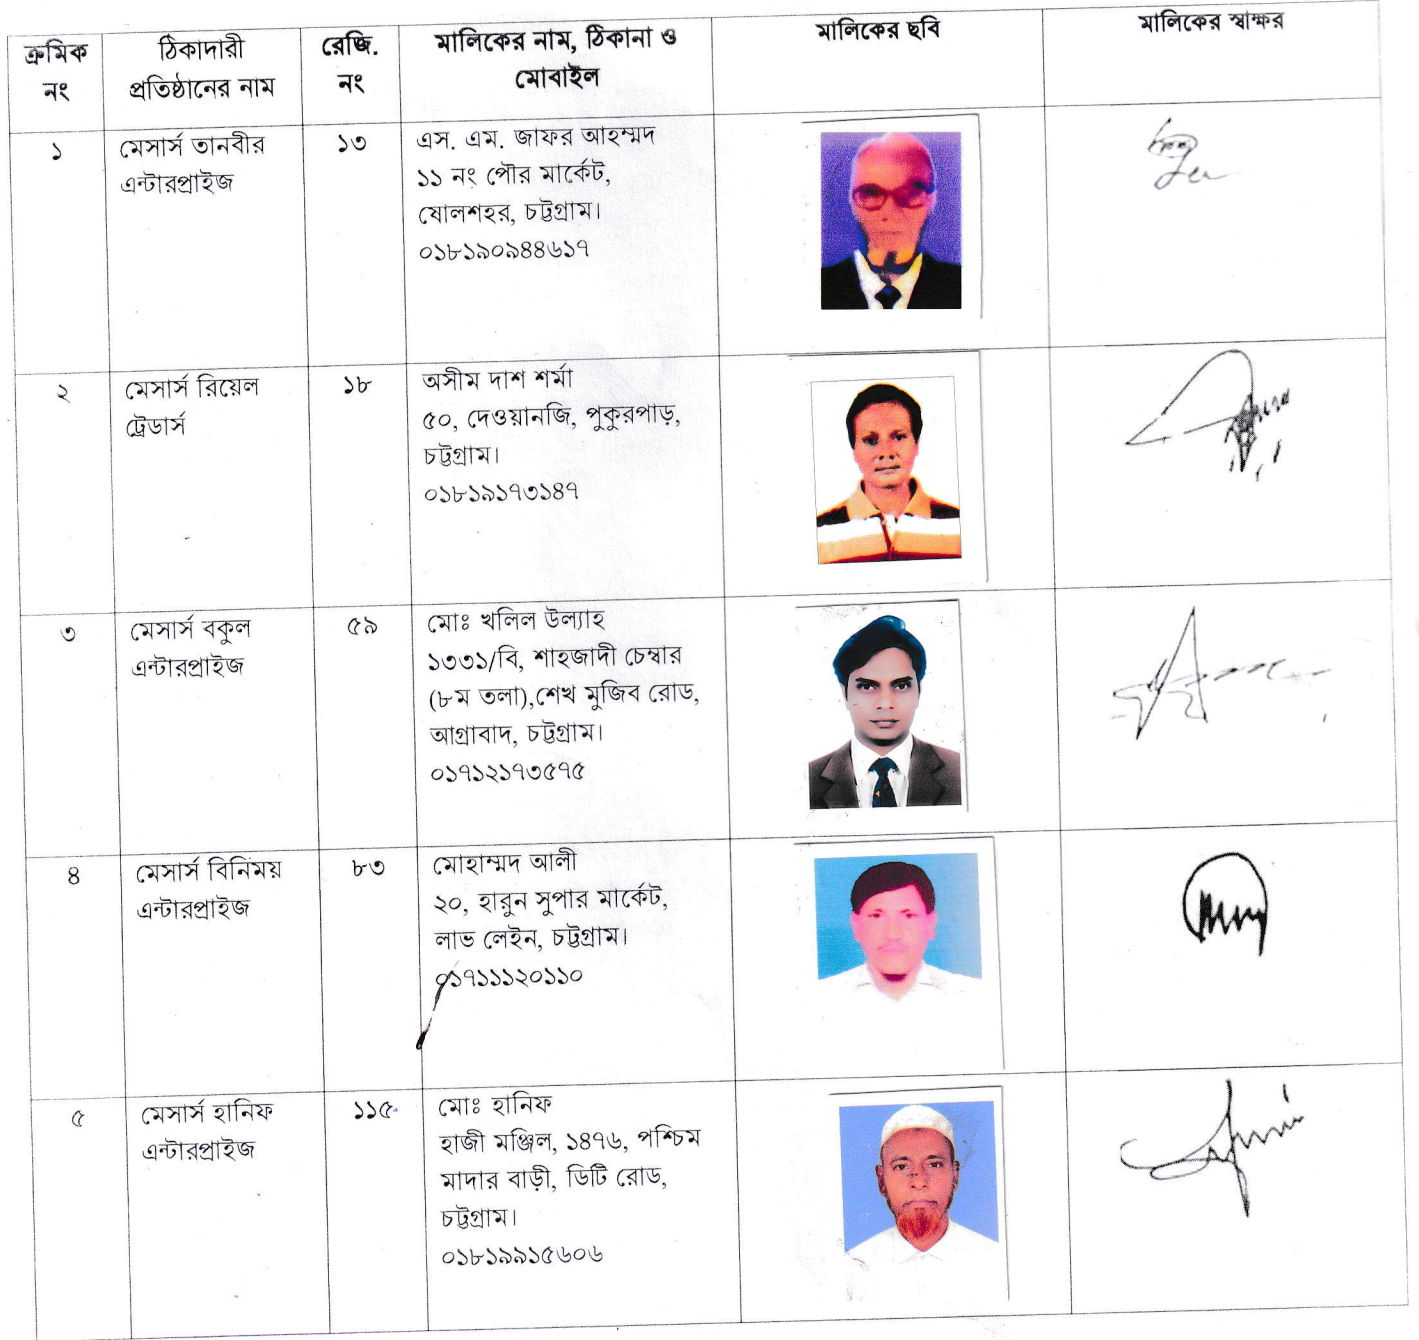 ক্রমিক নং
ঠিকাদারী প্রতিষ্ঠানের নাম
রেজি. নং
মালিকের নাম, ঠিকানা ও মোবাইল
মালিকের ছবি
মালিকের স্বাক্ষর
১
মেসার্স তানবীর
এন্টারপ্রাইজ
১৩
এস. এম. জাফর আহম্মদ
১১ নং পৌর মার্কেট,
ষোলশহর, চট্টগ্রাম।
০১৮১৯০৯৪৪৬১৭
২
মেসার্স রিয়েল
ট্রেডার্স
১৮
অসীম দাশ শর্মা
৫০, দেওয়ানজি, পুকুরপাড়,
চট্টগ্রাম।
০১৮১৯১৭৩১৪৭
৩
মেসার্স বকুল
এন্টারপ্রাইজ
৫৯
মোঃ খলিল উল্যাহ
১৩৩১/বি, শাহজাদী চেম্বার
(৮ম তলা),শেখ মুজিব রোড,
আগ্রাবাদ, চট্টগ্রাম।
০১৭১২১৭৩৫৭৫
৪
মেসার্স বিনিময়
এন্টারপ্রাইজ
৮৩
মোহাম্মদ আলী
২০, হারুন সুপার মার্কেট,
লাভ লেইন, চট্টগ্রাম।
০১৭১১১২০১১০
৫
মেসার্স হানিফ
এন্টারপ্রাইজ
১১৫
মোঃ হানিফ
হাজী মঞ্জিল, ১৪৭৬, পশ্চিম
মাদার বাড়ী, ডিটি রোড,
চট্টগ্রাম।
০১৮১৯৯১৫৬০৬